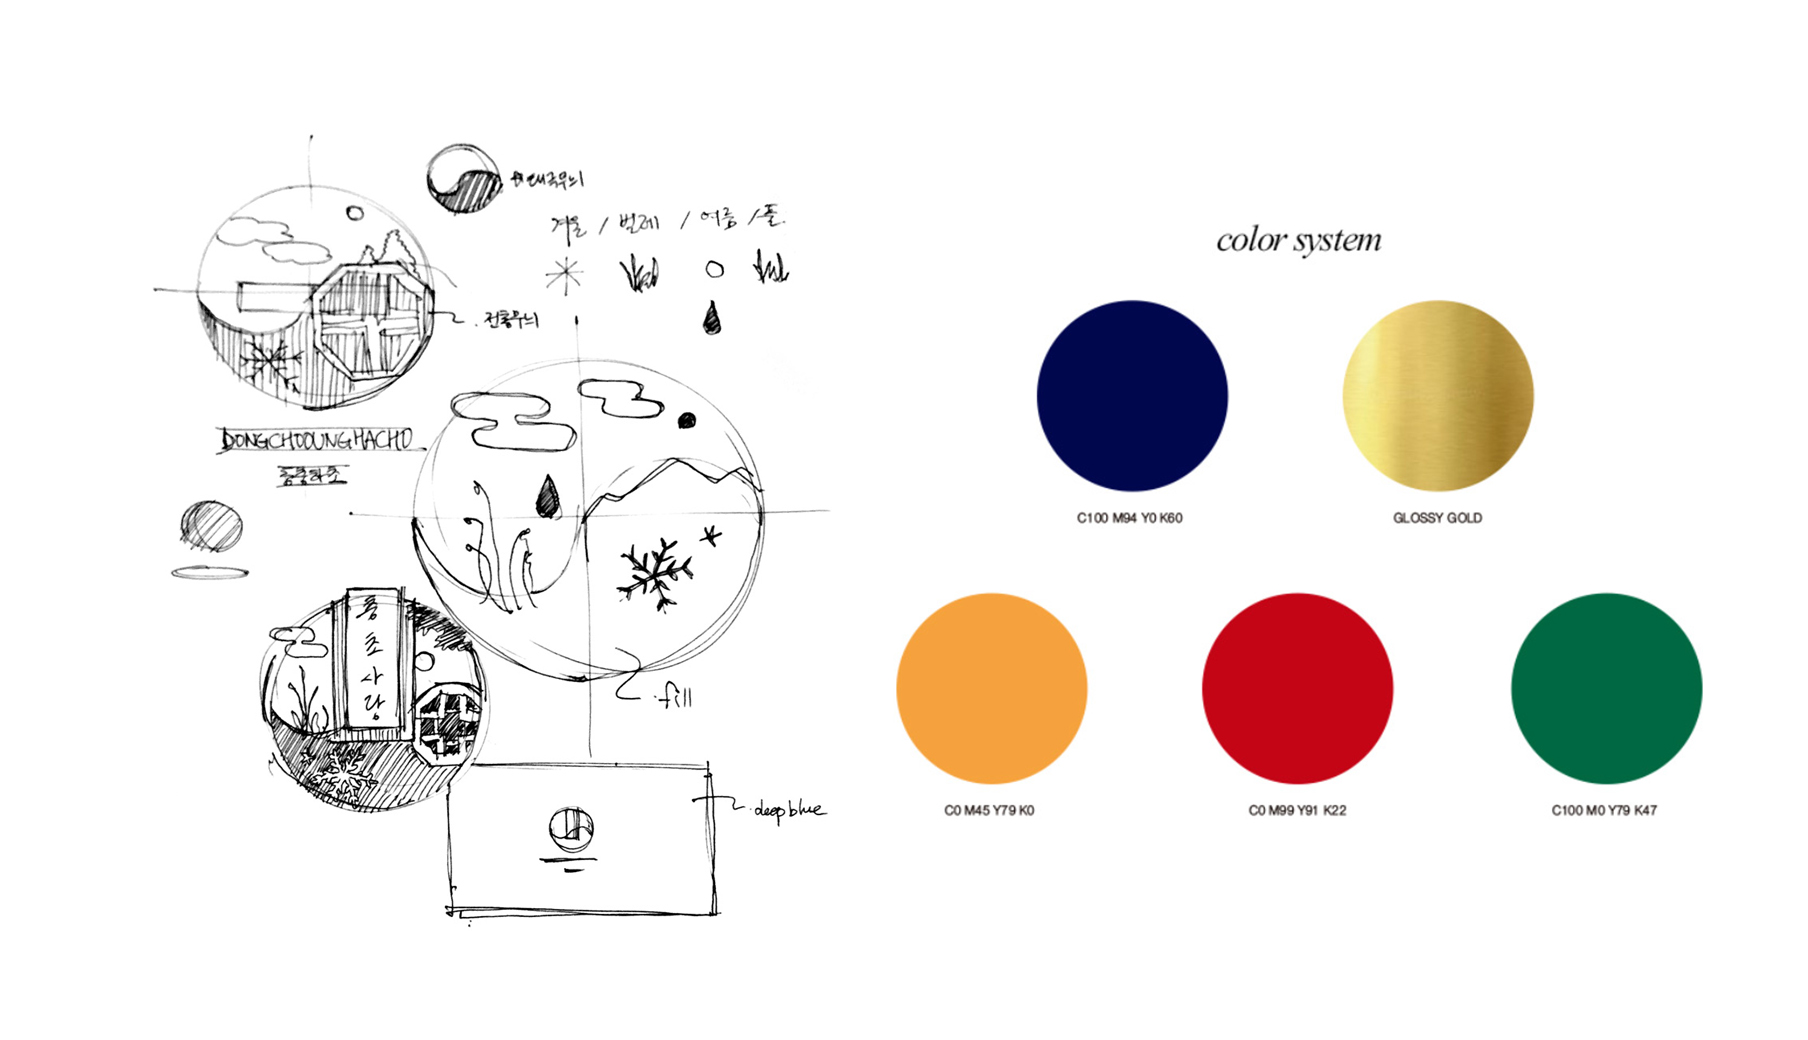 태극무늬
겨울 / 벌레 / 여름 / 풀.
.전통무늬
DONGCHOOUNGHACHO
동충하초
동
초
사
랑
.fill
.deep blue
color system
C100 M94 Y0 K60
GLOSSY GOLD
C0 M45 Y79 K0
C0 M99 Y91 K22
C100 M0 Y79 K47